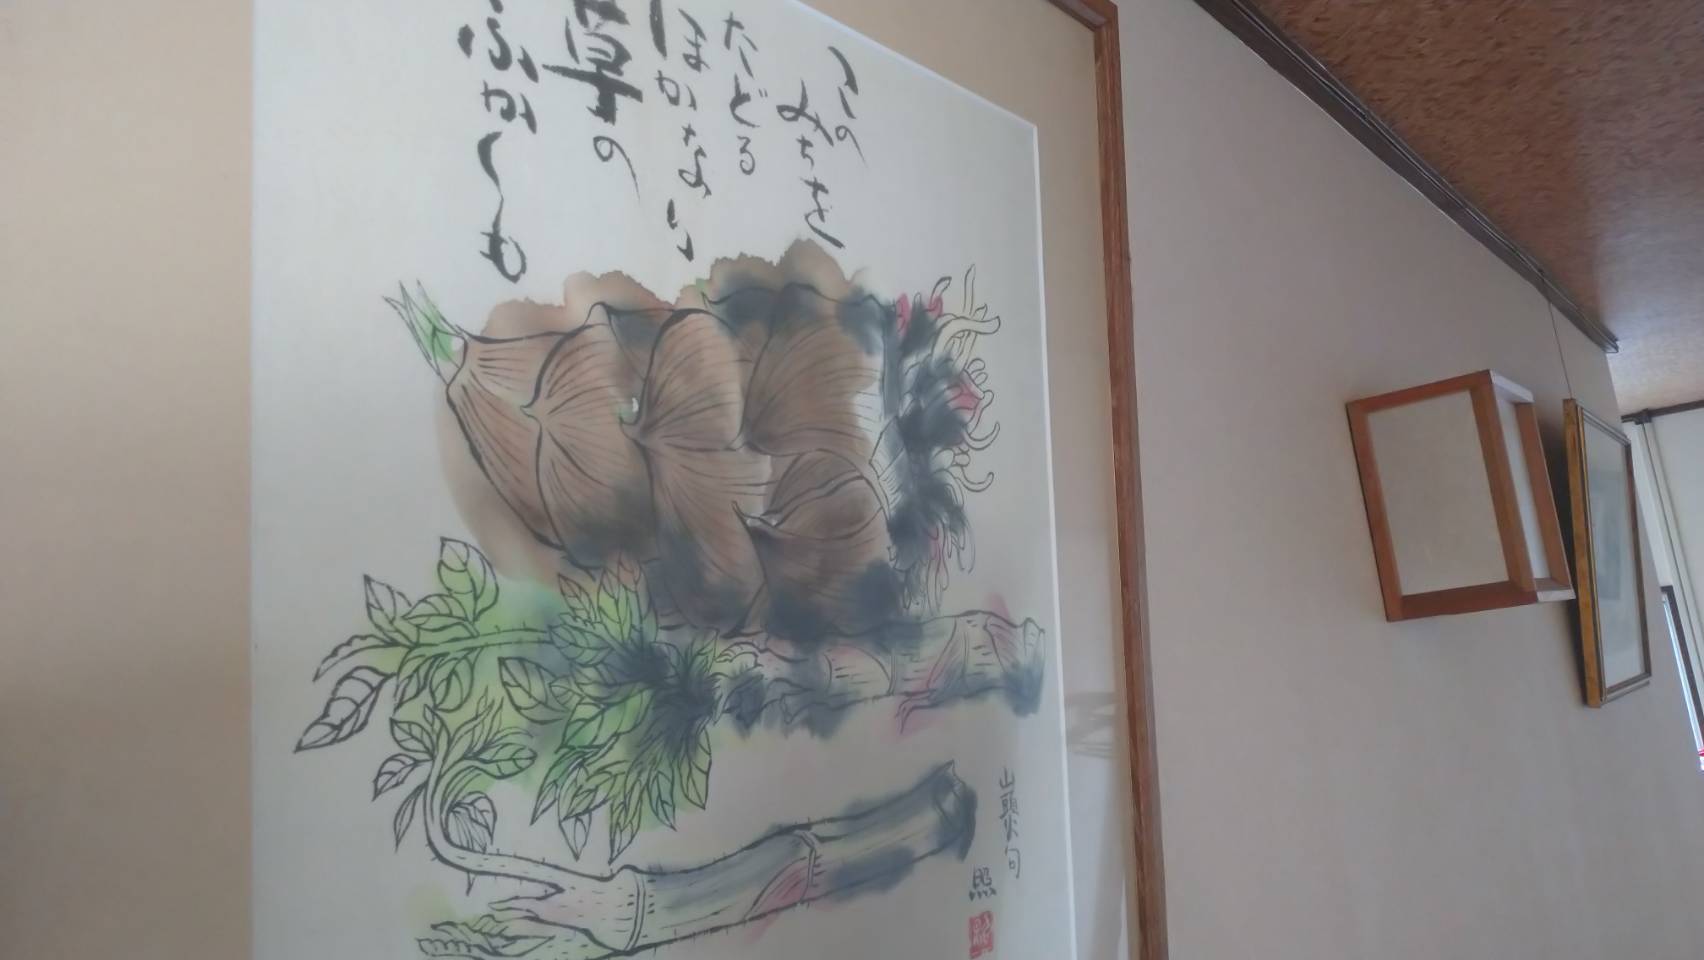 この
みちを
たどる
ほかない
草の
ふかくも
山頭火句
照